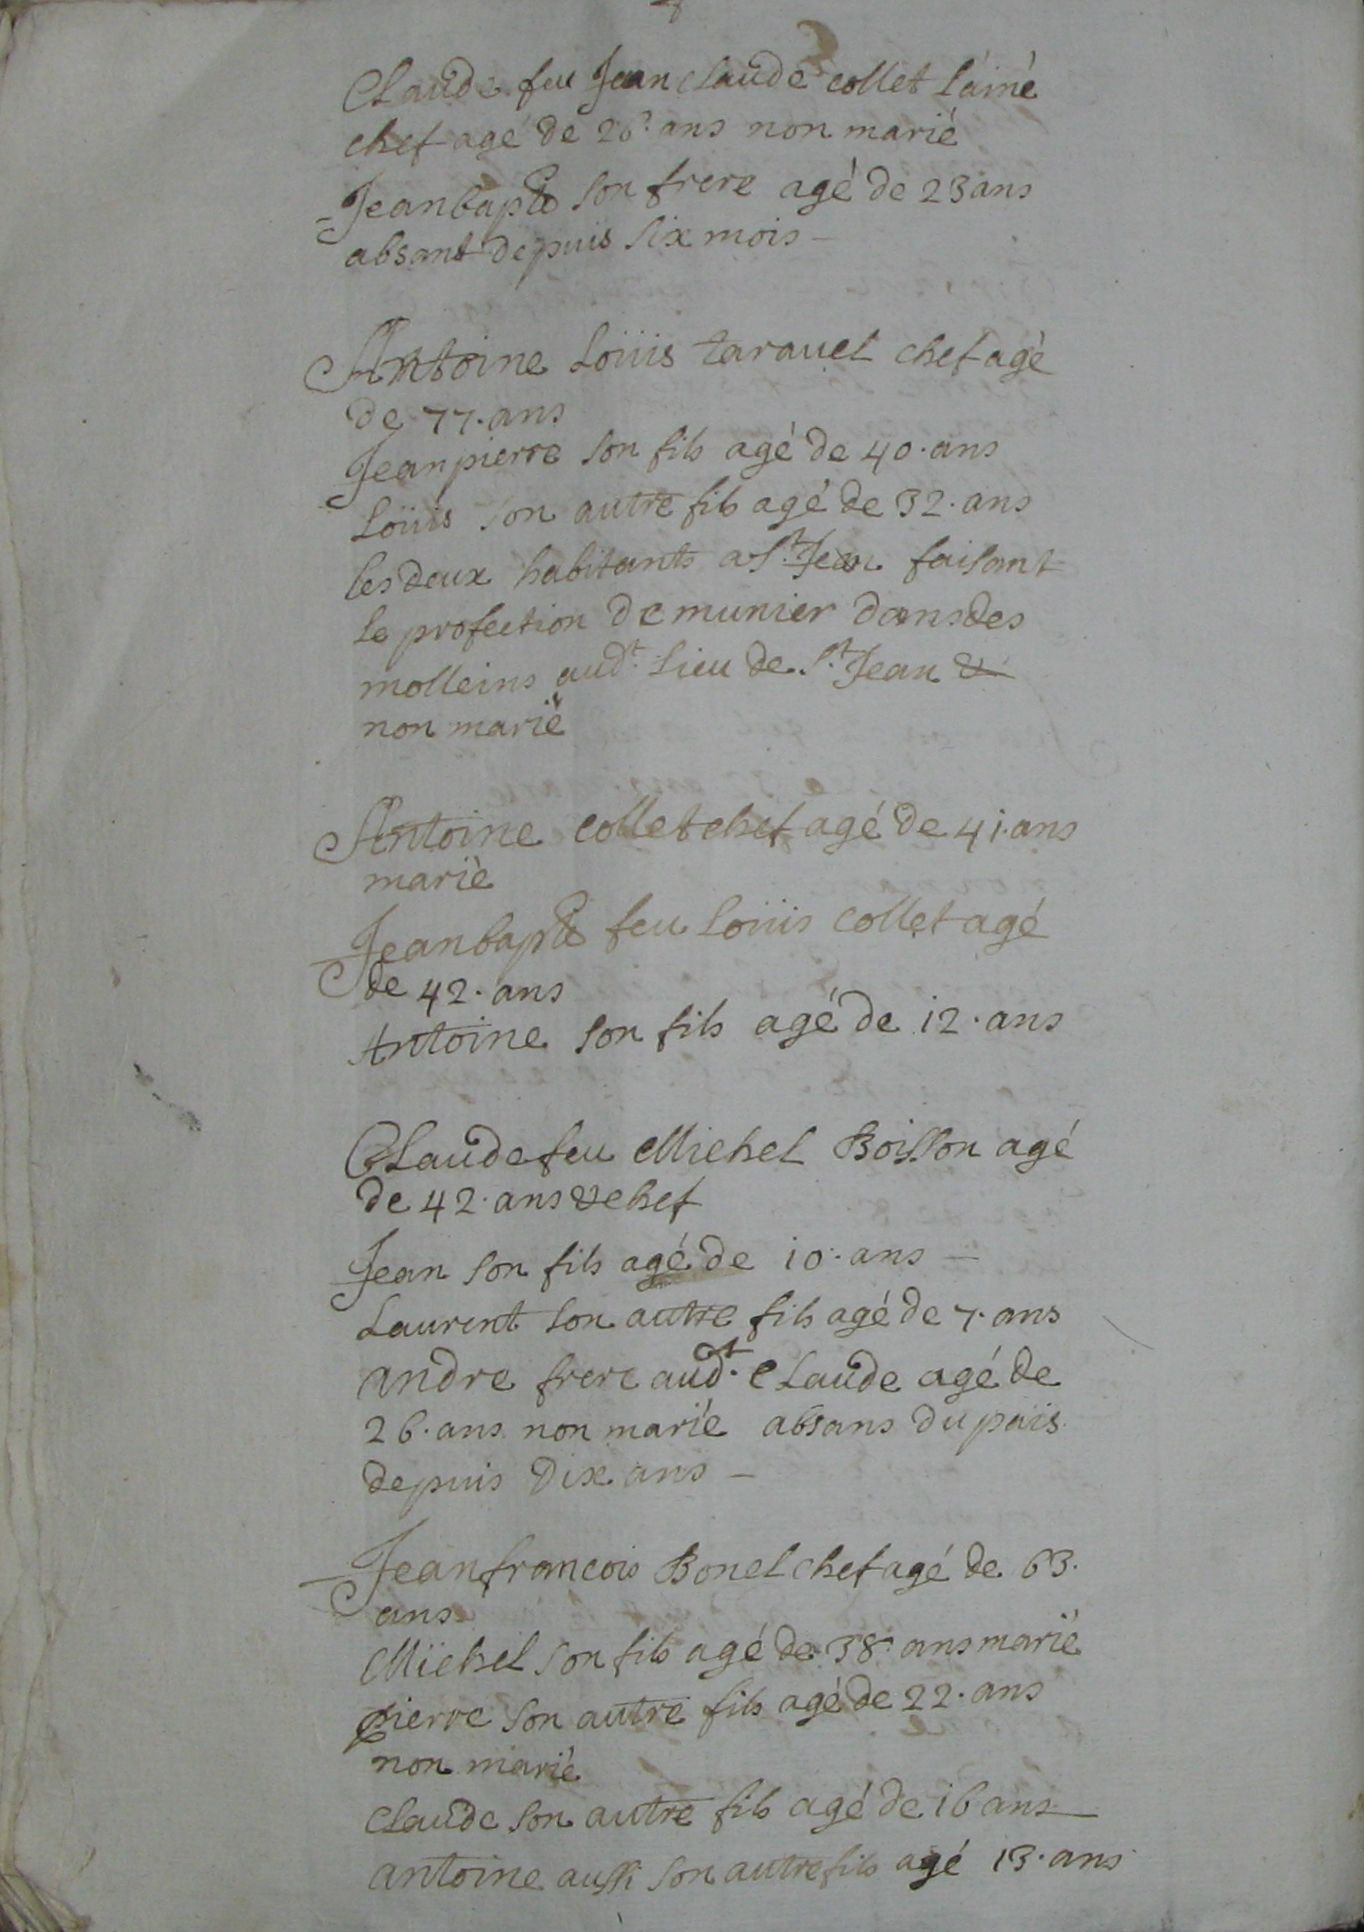 Claude feu Jean Claude collet l'ainé
chef agé de 26 ans non marié
Jeanbapte son frere agé de 23 ans
absant depuis six mois
Antoine Loüis taravel chef agé
de 77. ans
Jeanpierre son fils agé de 40. ans
Loüis son autre fils agé de 32. ans
les deux habitants a St Jean faisant
le profection de munier dans des
molleins audt lieu de St Jean &
non marié
Antoine collet chef agé de 41. ans
marié
Jeanbapte feu Loüis collet agé
de 42. ans
Antoine son fils agé de 12. ans
Claude feu Michel Boisson agé
de 42. ans & chef
Jean son fils agé de 10. ans
Laurent son autre fils agé de 7. ans
andre frere audt. Claude agé de
26. ans non marié absans du païs
depuis dix ans
Jeanfrancois Bonel chef agé de 63.
ans
Michel son fils agé de 38. ans marié
pierre son autre fils agé de 22. ans
non marié
Claude son autre fils agé de 16 ans
antoine aussi son autre fils agé 13. ans